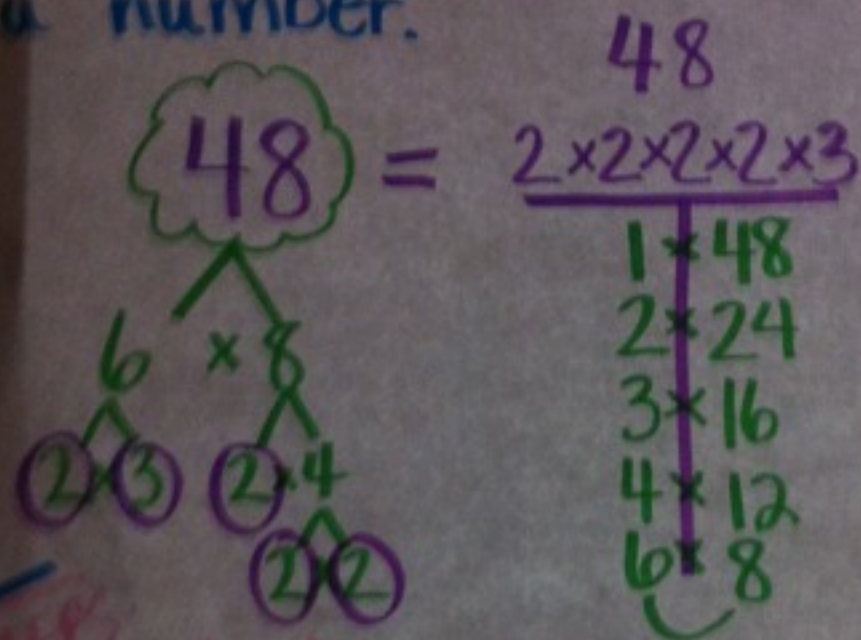 a number.
48 =
6 × 8
2 × 3 2 × 4
2 × 2
48
2×2×2×2×3
1 × 48
2 × 24
3 × 16
4 × 12
6 × 8